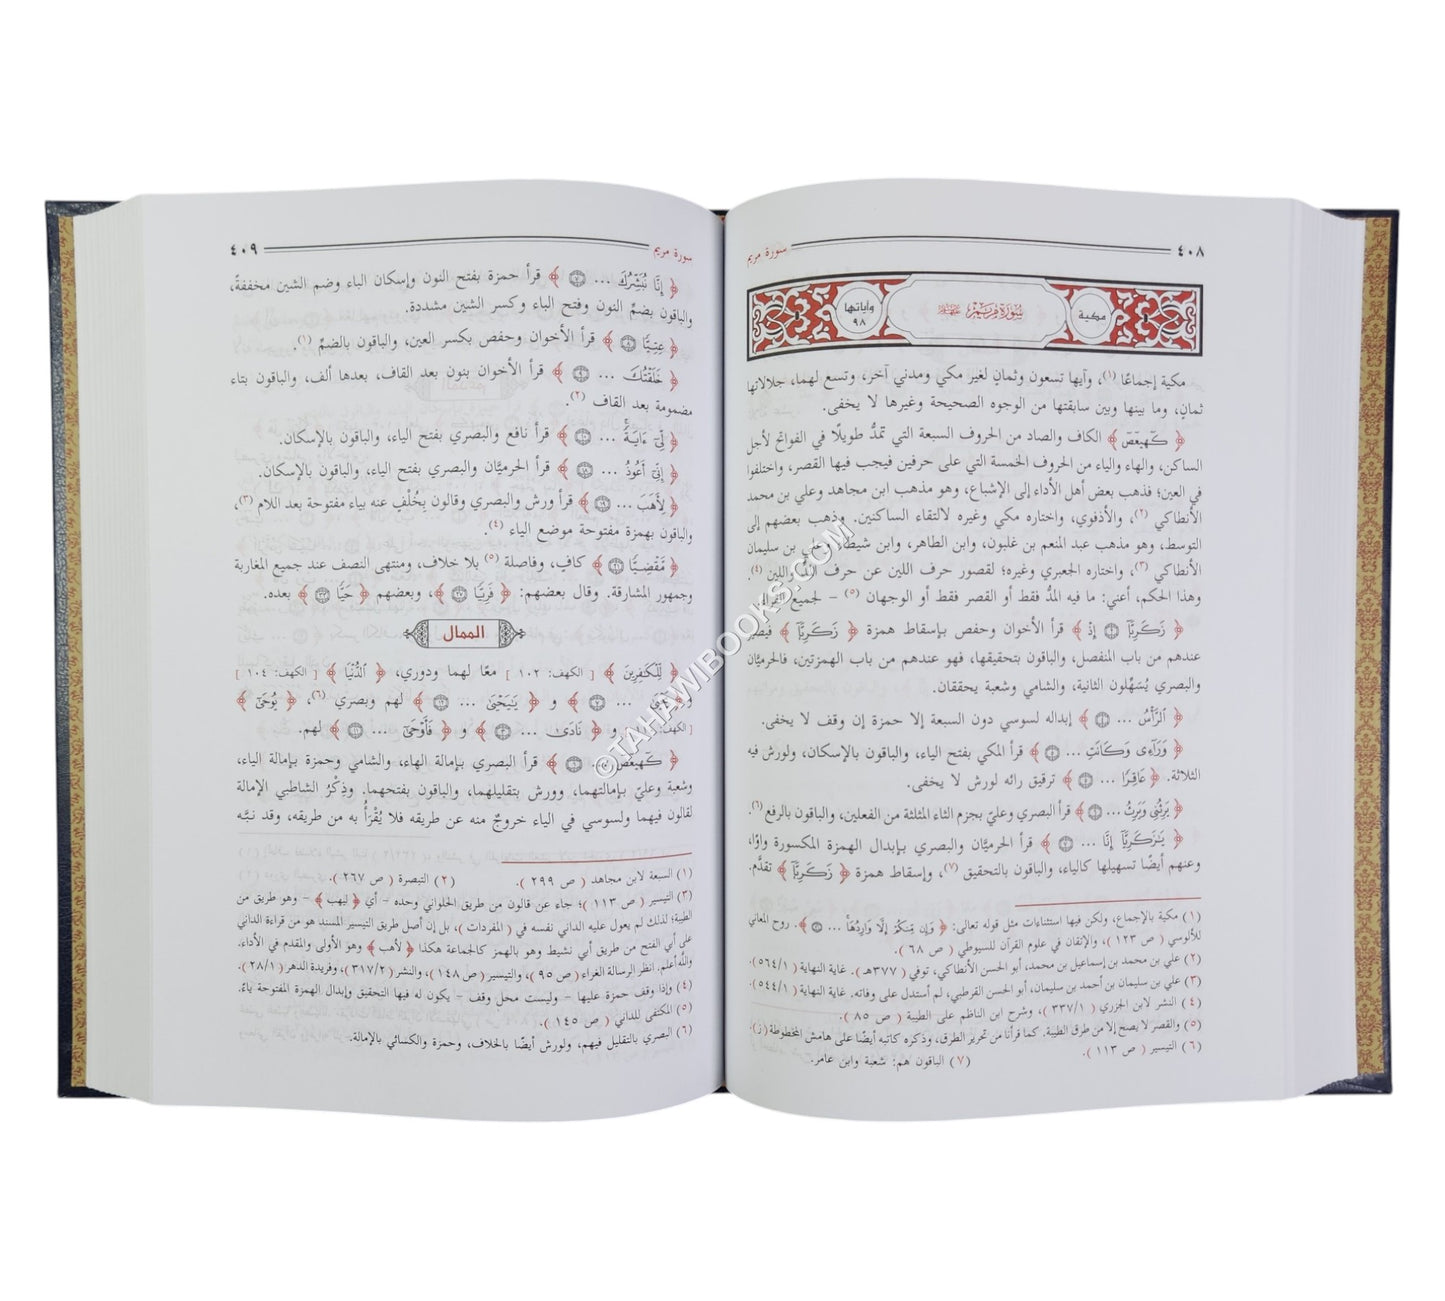 ٤٠٨
سورة مريم
مكية
سورة مريم
وآياتها
٩٨
مكية إجماعًا (١)، وآيها تسعون وثمانٍ لغير مكي ومدني آخر، وتسع لهما، جلالاتها
ثمانٍ، وما بينها وبين سابقتها من الوجوه الصحيحة وغيرها لا يخفى.
﴿ كٓهيعٓصٓ ﴾ الكاف والصاد من الحروف السبعة التي تمدُّ طويلًا في الفواتح لأجل
الساكن، والهاء والياء من الحروف الخمسة التي على حرفين فيجب فيها القصر، واختلفوا
في العين؛ فذهب بعض أهل الأداء إلى الإشباع، وهو مذهب ابن مجاهد وعلي بن محمد
الأنطاكي (٢)، والأذفوي، واختاره مكي وغيره لالتقاء الساكنين. وذهب بعضهم إلى
التوسط، وهو مذهب عبد المنعم بن غلبون، وابن الطاهر، وابن شيطا، وعلي بن سليمان
الأنطاكي (٣)، واختاره الجعبري وغيره؛ لقصور حرف اللين عن حرف المد واللين (٤).
وهذا الحكم، أعني: ما فيه المدُّ فقط أو القصر فقط أو الوجهان (٥) – لجميع القراء.
﴿ زَكَرِيَّآ ۝ إِذْ ﴾ قرأ الأخوان وحفص بإسقاط همزة ﴿ زَكَرِيَّآ ﴾ فيصير
عندهم من باب المنفصل، والباقون بتحقيقها، فهو عندهم من باب الهمزتين، فالحرميَّان
والبصري يُسَهِّلون الثانية، والشامي وشعبة يحققان.
﴿ ٱلرَّأْسُ ... ۝ ﴾ إبداله لسوسي دون السبعة إلا حمزة إن وقف لا يخفى.
﴿ وَرَآءِى وَكَانَتِ ... ۝ ﴾ قرأ المكي بفتح الياء، والباقون بالإسكان، ولورش فيه
الثلاثة. ﴿ عَاقِرًا ... ۝ ﴾ ترقيق رائه لورش لا يخفى.
﴿ يَرِثُنِى وَيَرِثُ ... ۝ ﴾ قرأ البصري وعليّ بجزم الثاء المثلثة من الفعلين، والباقون بالرفع (٦).
﴿ يَـٰزَكَرِيَّآ إِنَّا ... ۝ ﴾ قرأ الحرميَّان والبصري بإبدال الهمزة المكسورة واوًا،
وعنهم أيضًا تسهيلها كالياء، والباقون بالتحقيق (٧)، وإسقاط همزة ﴿ زَكَرِيَّآ ﴾ تقدَّم.
(١) مكية بالإجماع، ولكن فيها استثناءات مثل قوله تعالى: ﴿ وَإِن مِّنكُمْ إِلَّا وَارِدُهَا ... ۝ ﴾. روح المعاني
للآلوسي ( ص ١٢٣ )، والإتقان في علوم القرآن للسيوطي ( ص ٦٨ ).
(٢) علي بن محمد بن إسماعيل بن محمد، أبو الحسن الأنطاكي، توفي ( ٣٧٧هـ ). غاية النهاية ( ٥٦٤/١ ).
(٣) علي بن سليمان بن أحمد بن سليمان، أبو الحسن القرطبي، لم أستدل على وفاته. غاية النهاية ( ٥٤٤/١ ).
(٤) النشر لابن الجزري ( ٣٣٧/١ )، وشرح ابن الناظم على الطيبة ( ص ٨٥ ).
(٥) والقصر لا يصح إلا من طرق الطيبة. كما قرأنا من تحرير الطرق، وذكره كاتبه أيضًا على هامش المخطوطة (ز).
(٦) التيسير ( ص ١١٣ ).
(٧) الباقون هم: شعبة وابن عامر.
سورة مريم
٤٠٩
﴿ إِنَّا نُبَشِّرُكَ ... ۝ ﴾ قرأ حمزة بفتح النون وإسكان الباء وضم الشين مخففةً،
والباقون بضمِّ النون وفتح الباء وكسر الشين مشددة.
﴿ عِتِيًّا ۝ ﴾ قرأ الأخوان وحفص بكسر العين، والباقون بالضمِّ (١).
﴿ خَلَقْتُكَ ... ۝ ﴾ قرأ الأخوان بنون بعد القاف، بعدها ألف، والباقون بتاء
مضمومة بعد القاف (٢).
﴿ لِّىٓ ءَايَةً ... ۝ ﴾ قرأ نافع والبصري بفتح الياء، والباقون بالإسكان.
﴿ إِنِّىٓ أَعُوذُ ... ۝ ﴾ قرأ الحرميَّان والبصري بفتح الياء، والباقون بالإسكان.
﴿ لِأَهَبَ ... ۝ ﴾ قرأ ورش والبصري وقالون بِخُلْفٍ عنه بياء مفتوحة بعد اللام (٣)،
والباقون بهمزة مفتوحة موضع الياء (٤)
﴿ مَّقْضِيًّا ۝ ﴾ كافٍ، وفاصلة (٥) بلا خلاف، ومنتهى النصف عند جميع المغاربة
وجمهور المشارقة. وقال بعضهم: ﴿ فَرِيًّا ۝ ﴾، وبعضهم ﴿ حَيًّا ۝ ﴾ بعده.
الممال
﴿ لِّلْكَـٰفِرِينَ ﴾ [ الكهف: ١٠٢ ] معًا لهما ودوري، ﴿ ٱلدُّنْيَا ﴾ [ الكهف: ١٠٤ ]
... ۝ ﴾ و ﴿ يَـٰيَحْيَىٰ ... ۝ ﴾ لهم وبصري (٦)، ﴿ يُوحَىٰٓ ﴾
[ الكهف: ] و ﴿ نَادَىٰ ... ۝ ﴾ و ﴿ فَأَوْحَىٰٓ ... ۝ ﴾ لهم.
﴿ كٓهيعٓصٓ ۝ ﴾ قرأ البصري بإمالة الهاء، والشامي وحمزة بإمالة الياء،
وشعبة وعليّ بإمالتهما، وورش بتقليلهما، والباقون بفتحهما. وذِكْرُ الشاطبي الإمالة
لقالون فيهما ولسوسي في الياء خروجٌ منه عن طريقه فلا يُقْرَأُ به من طريقه، وقد نبَّه
(١) السبعة لابن مجاهد ( ص ٢٩٩ ).
(٢) التبصرة ( ص ٢٦٧ ).
(٣) التيسير ( ص ١١٣ )؛ جاء عن قالون من طريق الحلواني وحده – أي ﴿ ليهب ﴾ – وهو طريق من
الطيبة؛ لذلك لم يعول عليه الداني نفسه في ( المفردات )، بل إن أصل طريق التيسير المسند هو من قراءة الداني
على أبي الفتح من طريق أبي نشيط وهو بالهمز كالجماعة هكذا ﴿ لأهب ﴾ وهو الأولى والمقدم في الأداء.
والله أعلم. انظر الرسالة الغراء ( ص ٩٥ )، والتيسير ( ص ١٤٨ )، والنشر ( ٣١٧/٢ )، وفريدة الدهر ( ٢٨/١ ).
(٤) وإذا وقف حمزة عليها – وليست محل وقف – يكون له فيها التحقيق وإبدال الهمزة المفتوحة ياءً.
(٥) المكتفى للداني ( ص ١٤٥ ).
(٦) البصري بالتقليل فيهم، ولورش أيضًا بالخلاف، وحمزة والكسائي بالإمالة.
©TAHAWIBOOKS.COM